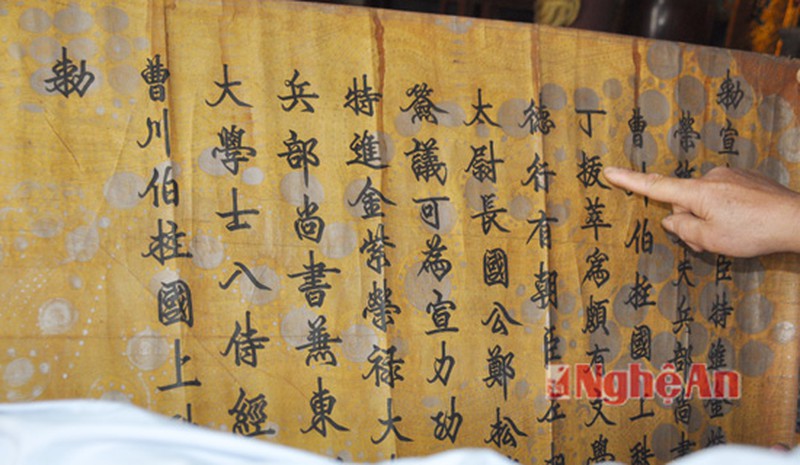 勅宣臣特進金
榮夫兵部尚書
曹川伯柱國上秩
丁拔萃寫頗有文學
德行有朝臣
太尉長國公鄭松
簽議可為宣力功
特進金紫榮祿大
兵部尚書兼東
大學士入侍經
曹川伯柱國上
勅
NghệAn